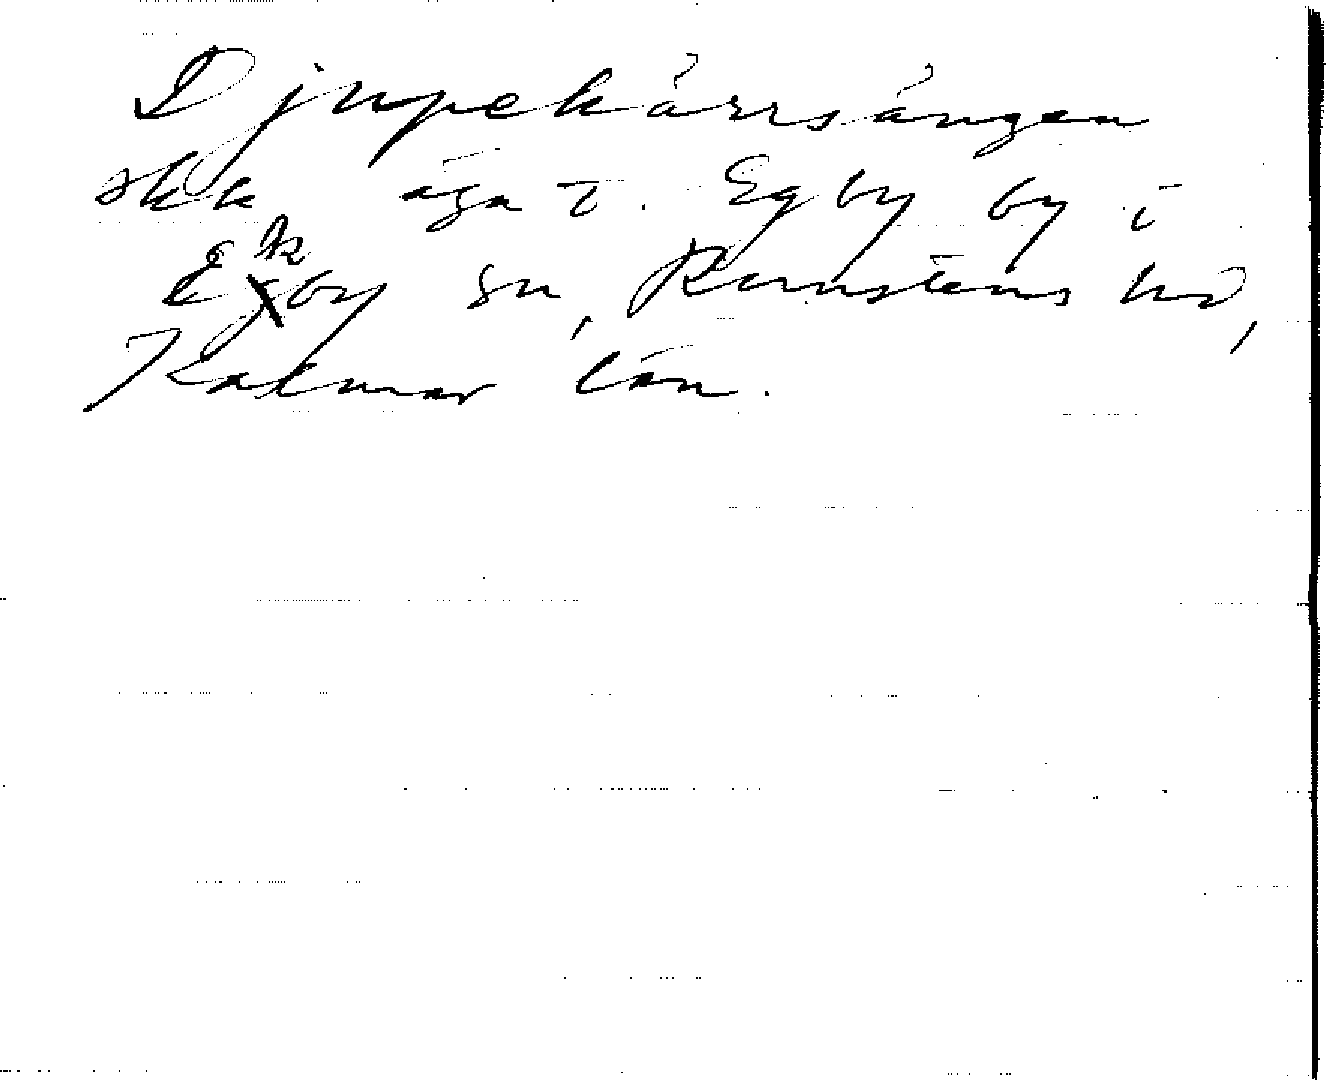 Djupekärrsängen
äga t. Egby by i
Ekby sn, Runstens hd,
Kalmar län.